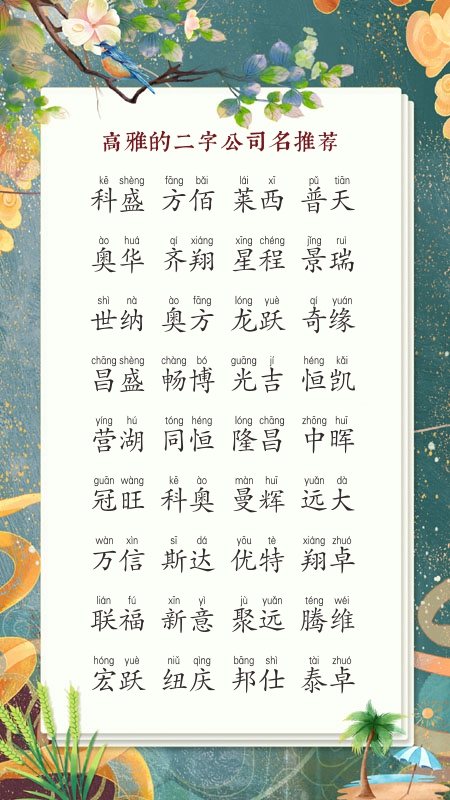 高雅的二字公司名推荐
kē shèng fāng bǎi lái xī pǔ tiān
科盛 方佰 莱西 普天
ào huá qí xiáng xīng chéng jǐng ruì
奥华 齐翔 星程 景瑞
shì nà ào fāng lóng yuè qí yuán
世纳 奥方 龙跃 奇缘
chāng shèng chàng bó guāng jí héng kǎi
昌盛 畅博 光吉 恒凯
yíng hú tóng héng lóng chāng zhōng huī
营湖 同恒 隆昌 中晖
guān wàng kē ào màn huī yuǎn dà
冠旺 科奥 曼辉 远大
wàn xìn sī dá yōu tè xiáng zhuó
万信 斯达 优特 翔卓
lián fú xīn yì jù yuǎn téng wéi
联福 新意 聚远 腾维
hóng yuè niǔ qìng bāng shì tài zhuó
宏跃 纽庆 邦仕 泰卓